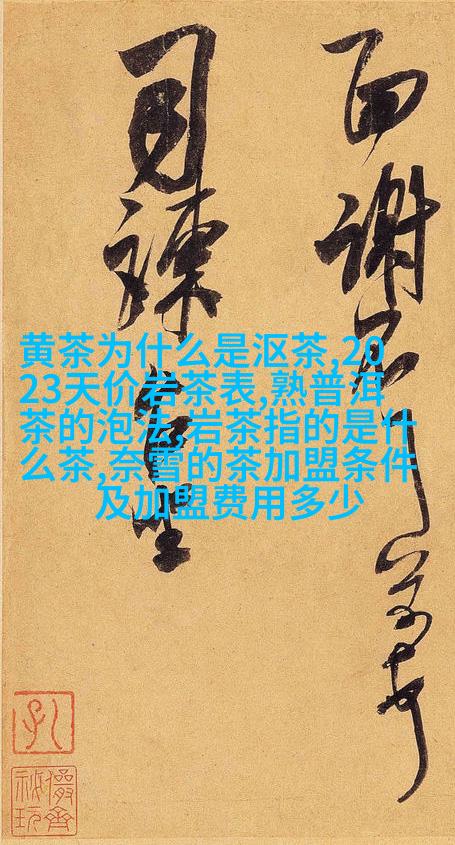 黄茶为什么是沤茶,20
23天价岩茶表,熟普洱
茶的泡法,岩茶指的是什
么茶,奈雪的茶加盟条件
及加盟费用多少
面謝
司諫
儼齋
秘玩